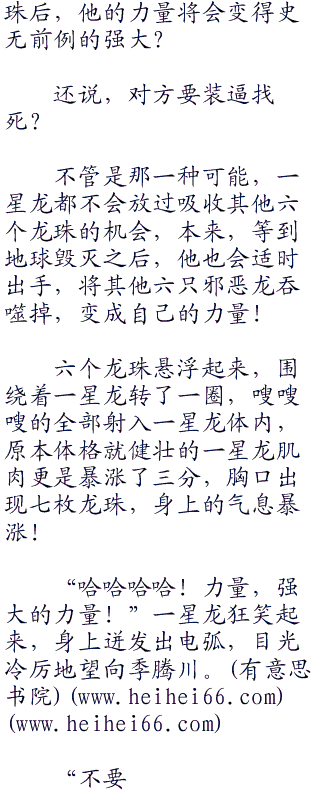 珠后，他的力量将会变得史
无前例的强大？
还说，对方要装逼找
死？
不管是那一种可能，一
星龙都不会放过吸收其他六
个龙珠的机会，本来，等到
地球毁灭之后，他也会适时
出手，将其他六只邪恶龙吞
噬掉，变成自己的力量！
六个龙珠悬浮起来，围
绕着一星龙转了一圈，嗖嗖
嗖的全部射入一星龙体内，
原本体格就健壮的一星龙肌
肉更是暴涨了三分，胸口出
现七枚龙珠，身上的气息暴
涨！
“哈哈哈哈！力量，强
大的力量！”一星龙狂笑起
来，身上迸发出电弧，目光
冷厉地望向季腾川。(有意思
书院)(www.heihei66.com)
(www.heihei66.com)
“不要